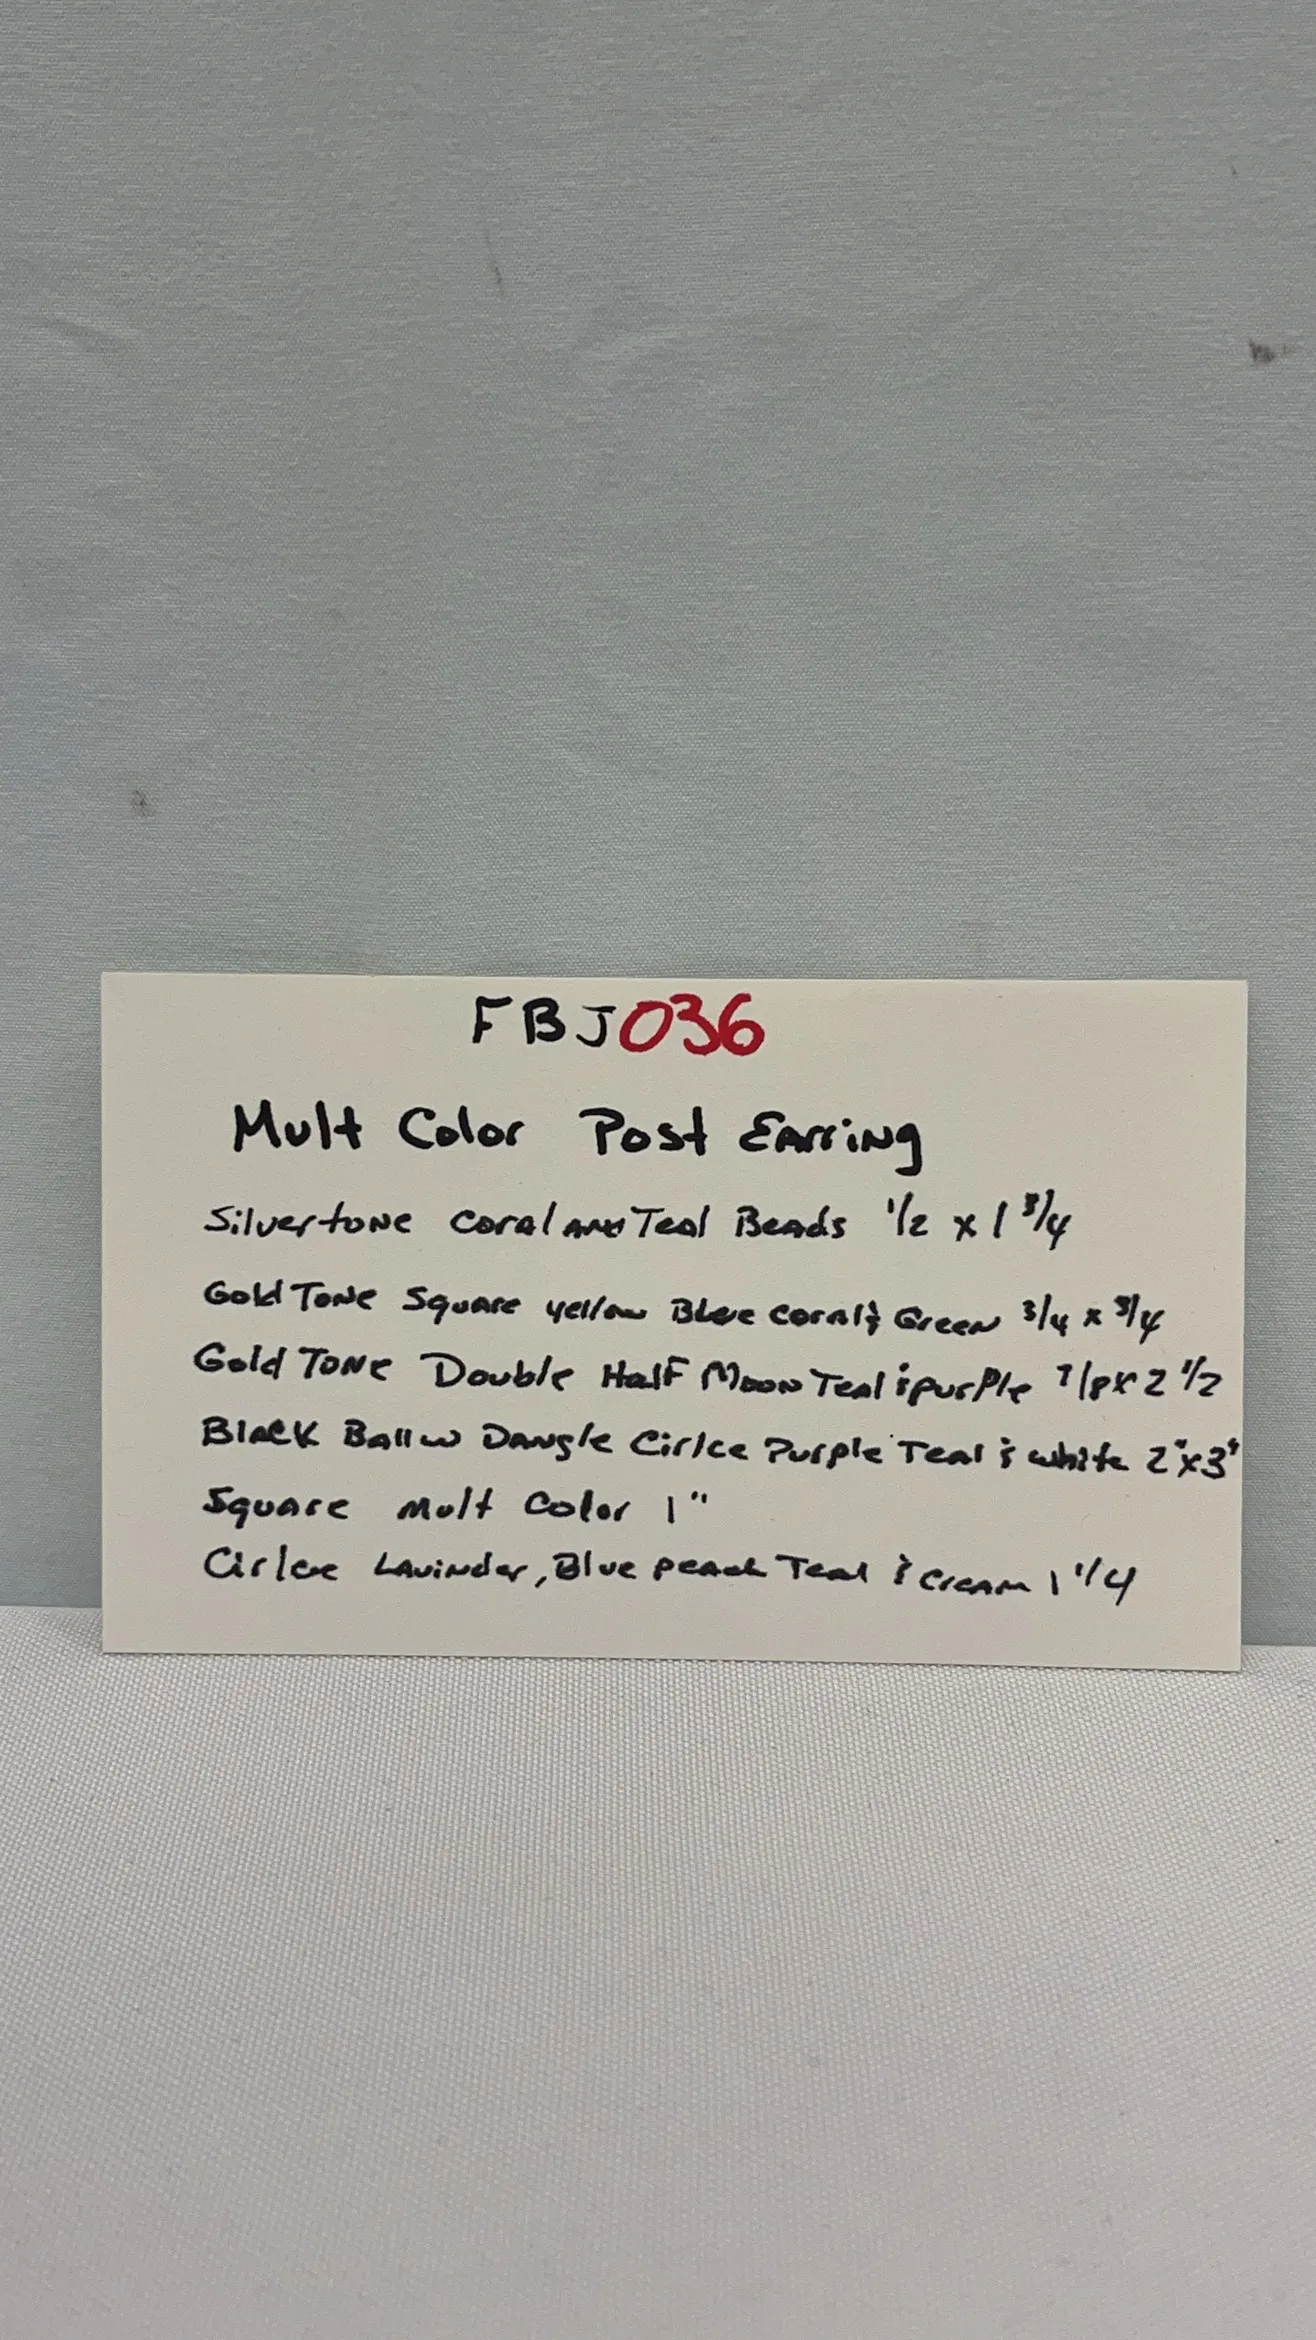 FBJ036
Mult Color Post Earring
Silvertone Coral and Teal Beads 1/2 x 1 3/4
Gold Tone Square yellow Blue Coral & Green 3/4 x 3/4
Gold Tone Double Half Moon Teal & purple 7/8 x 2 1/2
Black Ball w Dangle Cirlce Purple Teal & white 2" x 3"
Square Mult Color 1"
Cirlce Lavinder, Blue peach Teal & Cream 1 1/4